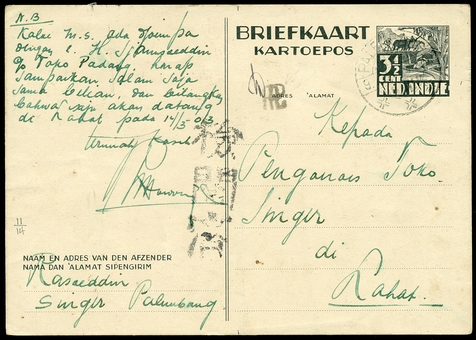 N.B
Kalau m.s. ada djoempa
dengan t. H. Sjamsoeddin
p/a Toko Padang, harap
sampaikan salam saja
sama beliau, dan bilangkan
bahwa saja akan datang
di Lahat pada 14/3-03
Terima kasih
11/14
NAAM EN ADRES VAN DEN AFZENDER
NAMA DAN ALAMAT SIPENGIRIM
Rasaeddin
Singer Palembang
BRIEFKAART
KARTOEPOS
ADRES ALAMAT
3½
CENT
NED. INDIE
Kepada
Pengaraus Toko
Singer
di
Lahat.